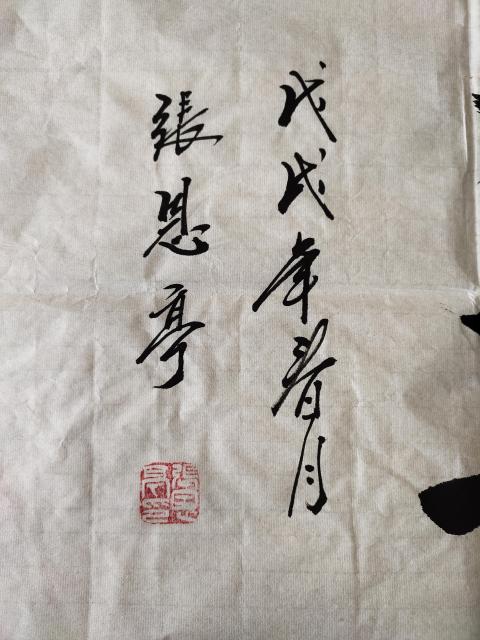 戊戌年春月
張恩亭